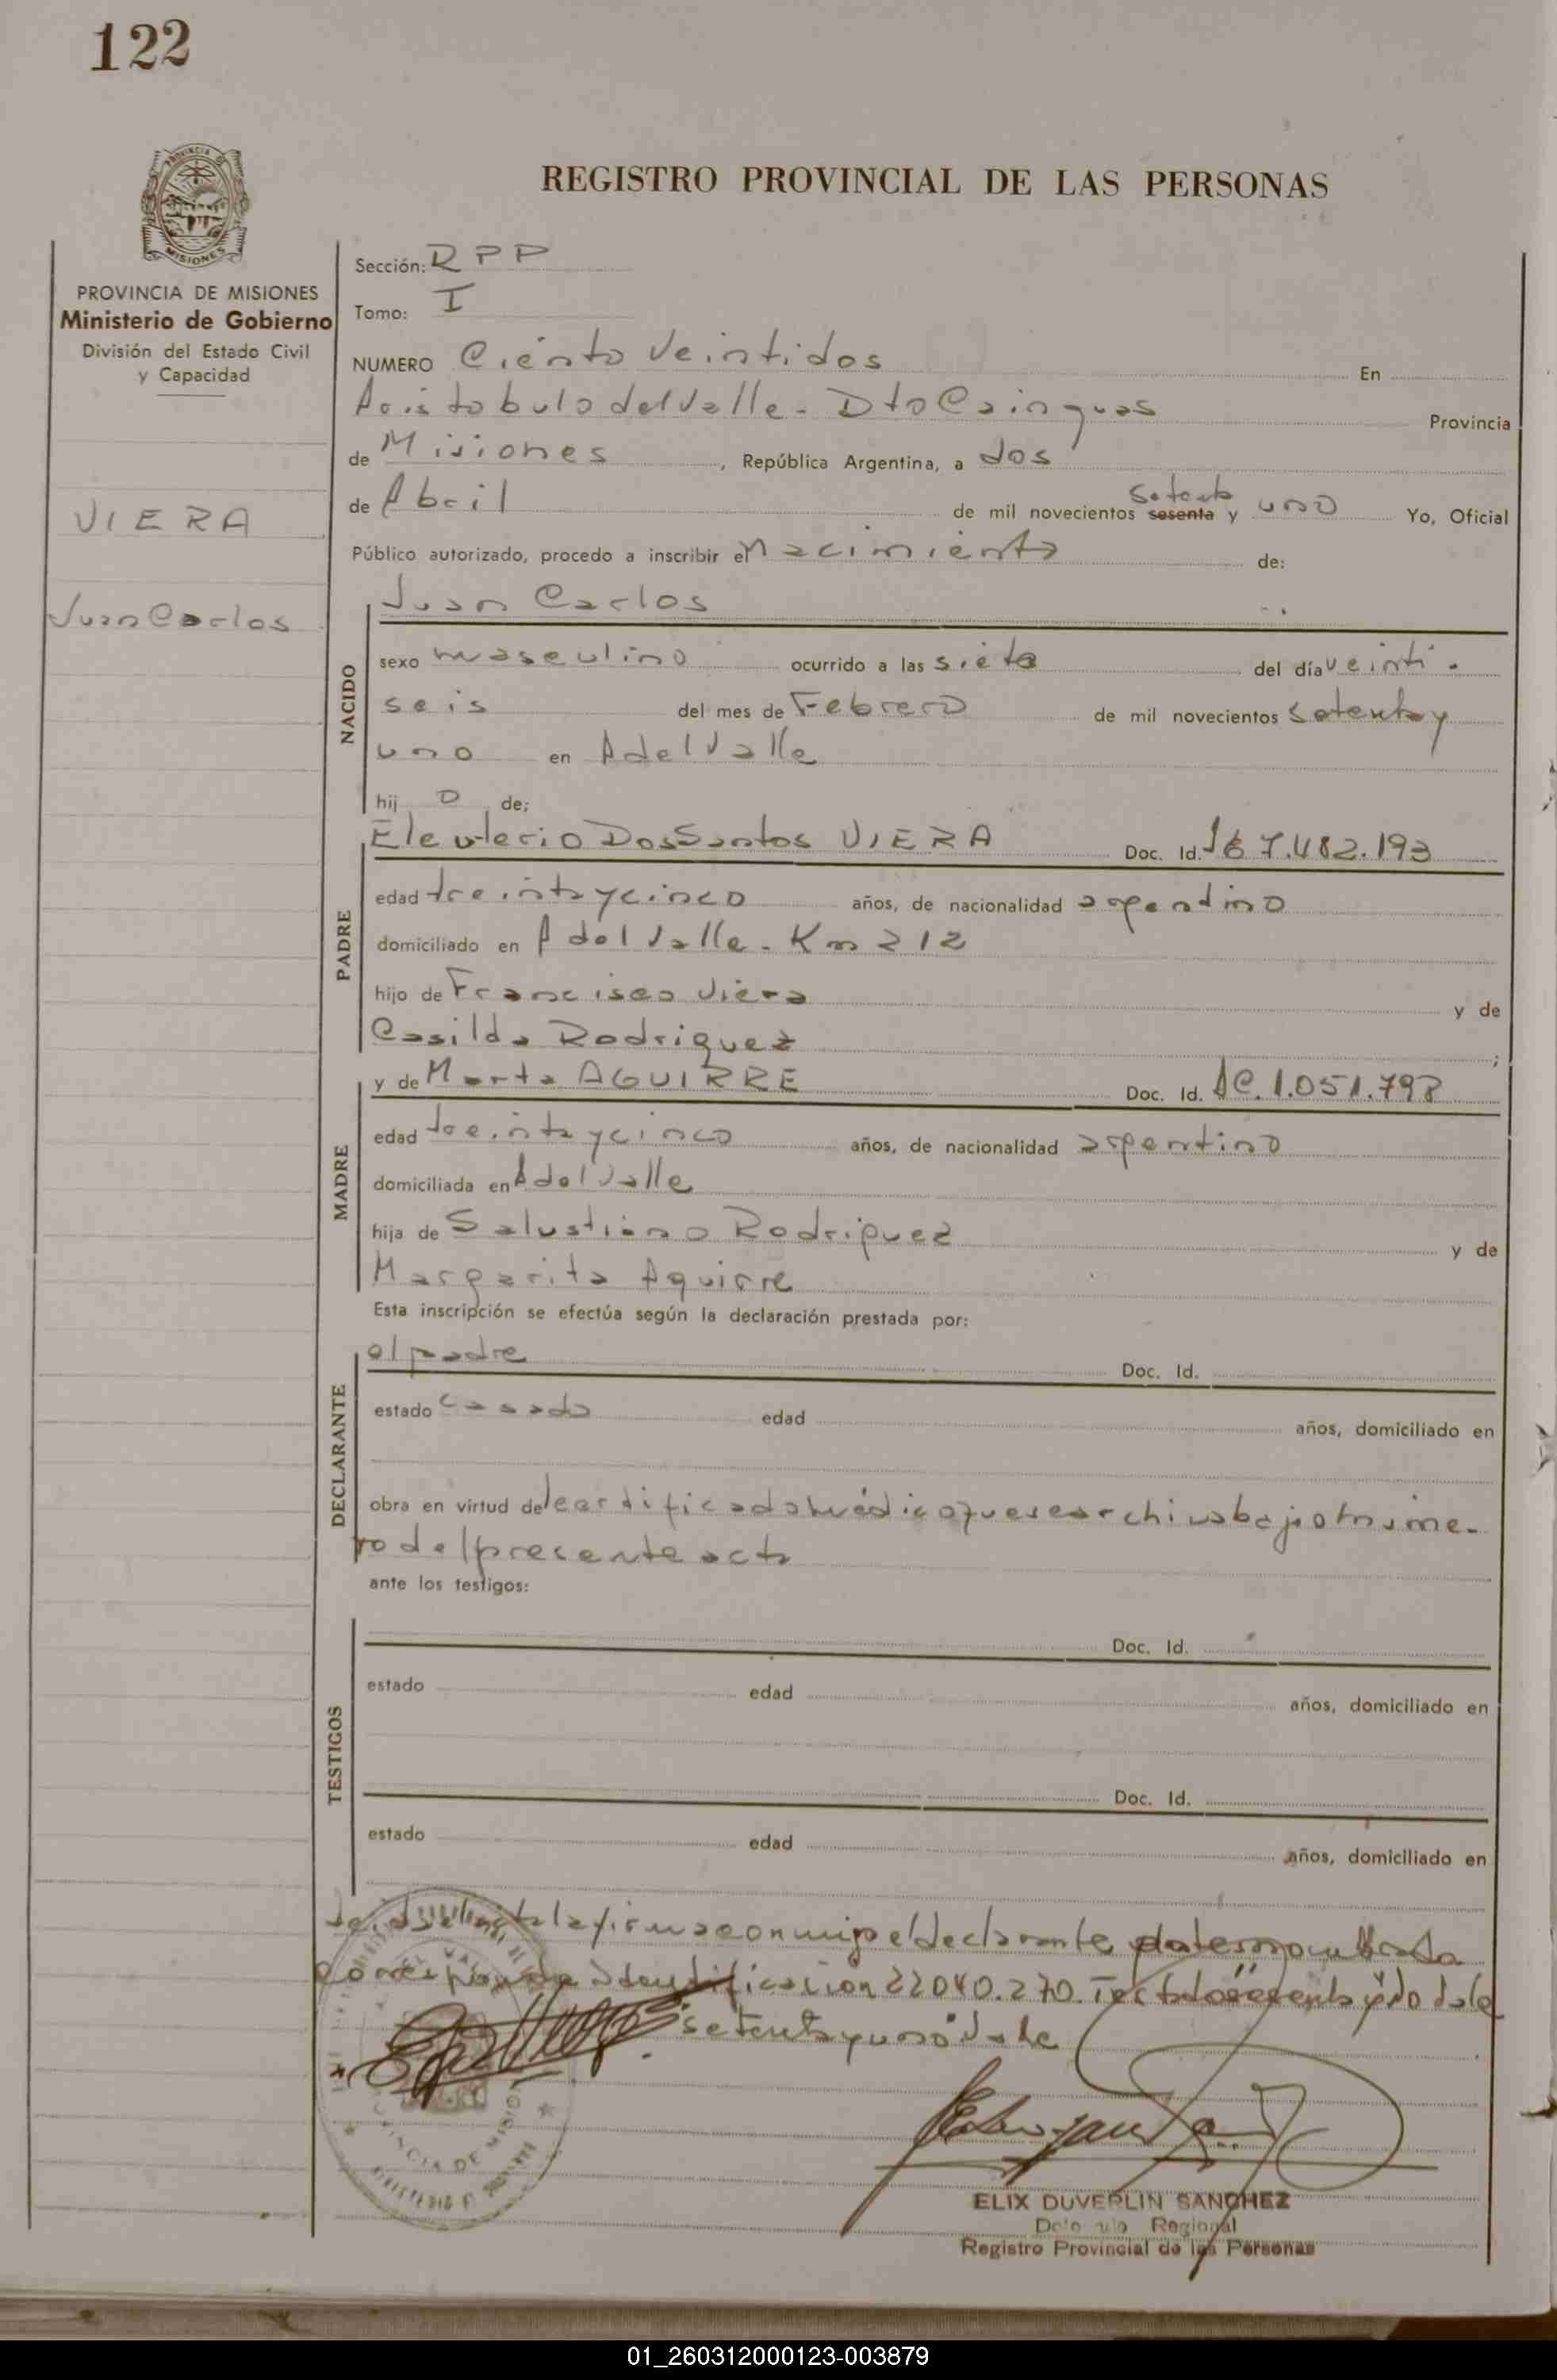 122
PROVINCIA DE MISIONES
Ministerio de Gobierno
División del Estado Civil
y Capacidad
VIERA
Juan Carlos
REGISTRO PROVINCIAL DE LAS PERSONAS
Sección: RPP
Tomo: I
NUMERO Ciento Veintidos En
Aristobulo del Valle - Dto Cainguas Provincia
de Misiones, República Argentina, a dos
de Abril de mil novecientos sesenta setenta y uno Yo, Oficial
Público autorizado, procedo a inscribir el Nacimiento de:
Juan Carlos
NACIDO
sexo masculino ocurrido a las siete del día veinti-
seis del mes de Febrero de mil novecientos setenta y
uno en A del Valle
hijo de;
PADRE
Eleuterio Dos Santos VIERA Doc. Id. 7.482.193
edad treinta y cinco años, de nacionalidad argentino
domiciliado en A del Valle - Km 212
hijo de Francisco Viera y de
Casilda Rodriguez ;
MADRE
y de Marta AGUIRRE Doc. Id. 1.051.798
edad treinta y cinco años, de nacionalidad argentino
domiciliada en A del Valle
hija de Salustiano Rodriguez y de
Margarita Aguirre
Esta inscripción se efectúa según la declaración prestada por:
DECLARANTE
el padre Doc. Id.
estado casado edad años, domiciliado en
obra en virtud del certificado médico que se archiva bajo el nume-
ro del presente acta
ante los testigos:
TESTIGOS
Doc. Id.
estado edad años, domiciliado en
Doc. Id.
estado edad años, domiciliado en
Leida el acta la firma conmigo el declarante
corresponde identificacion 22040.270. Testado sesenta y No vale
setenta y uno vale
PROVINCIA DE MISIONES
ELIX DUVERLIN SANCHEZ
Delegado Regional
Registro Provincial de las Personas
01_260312000123-003879